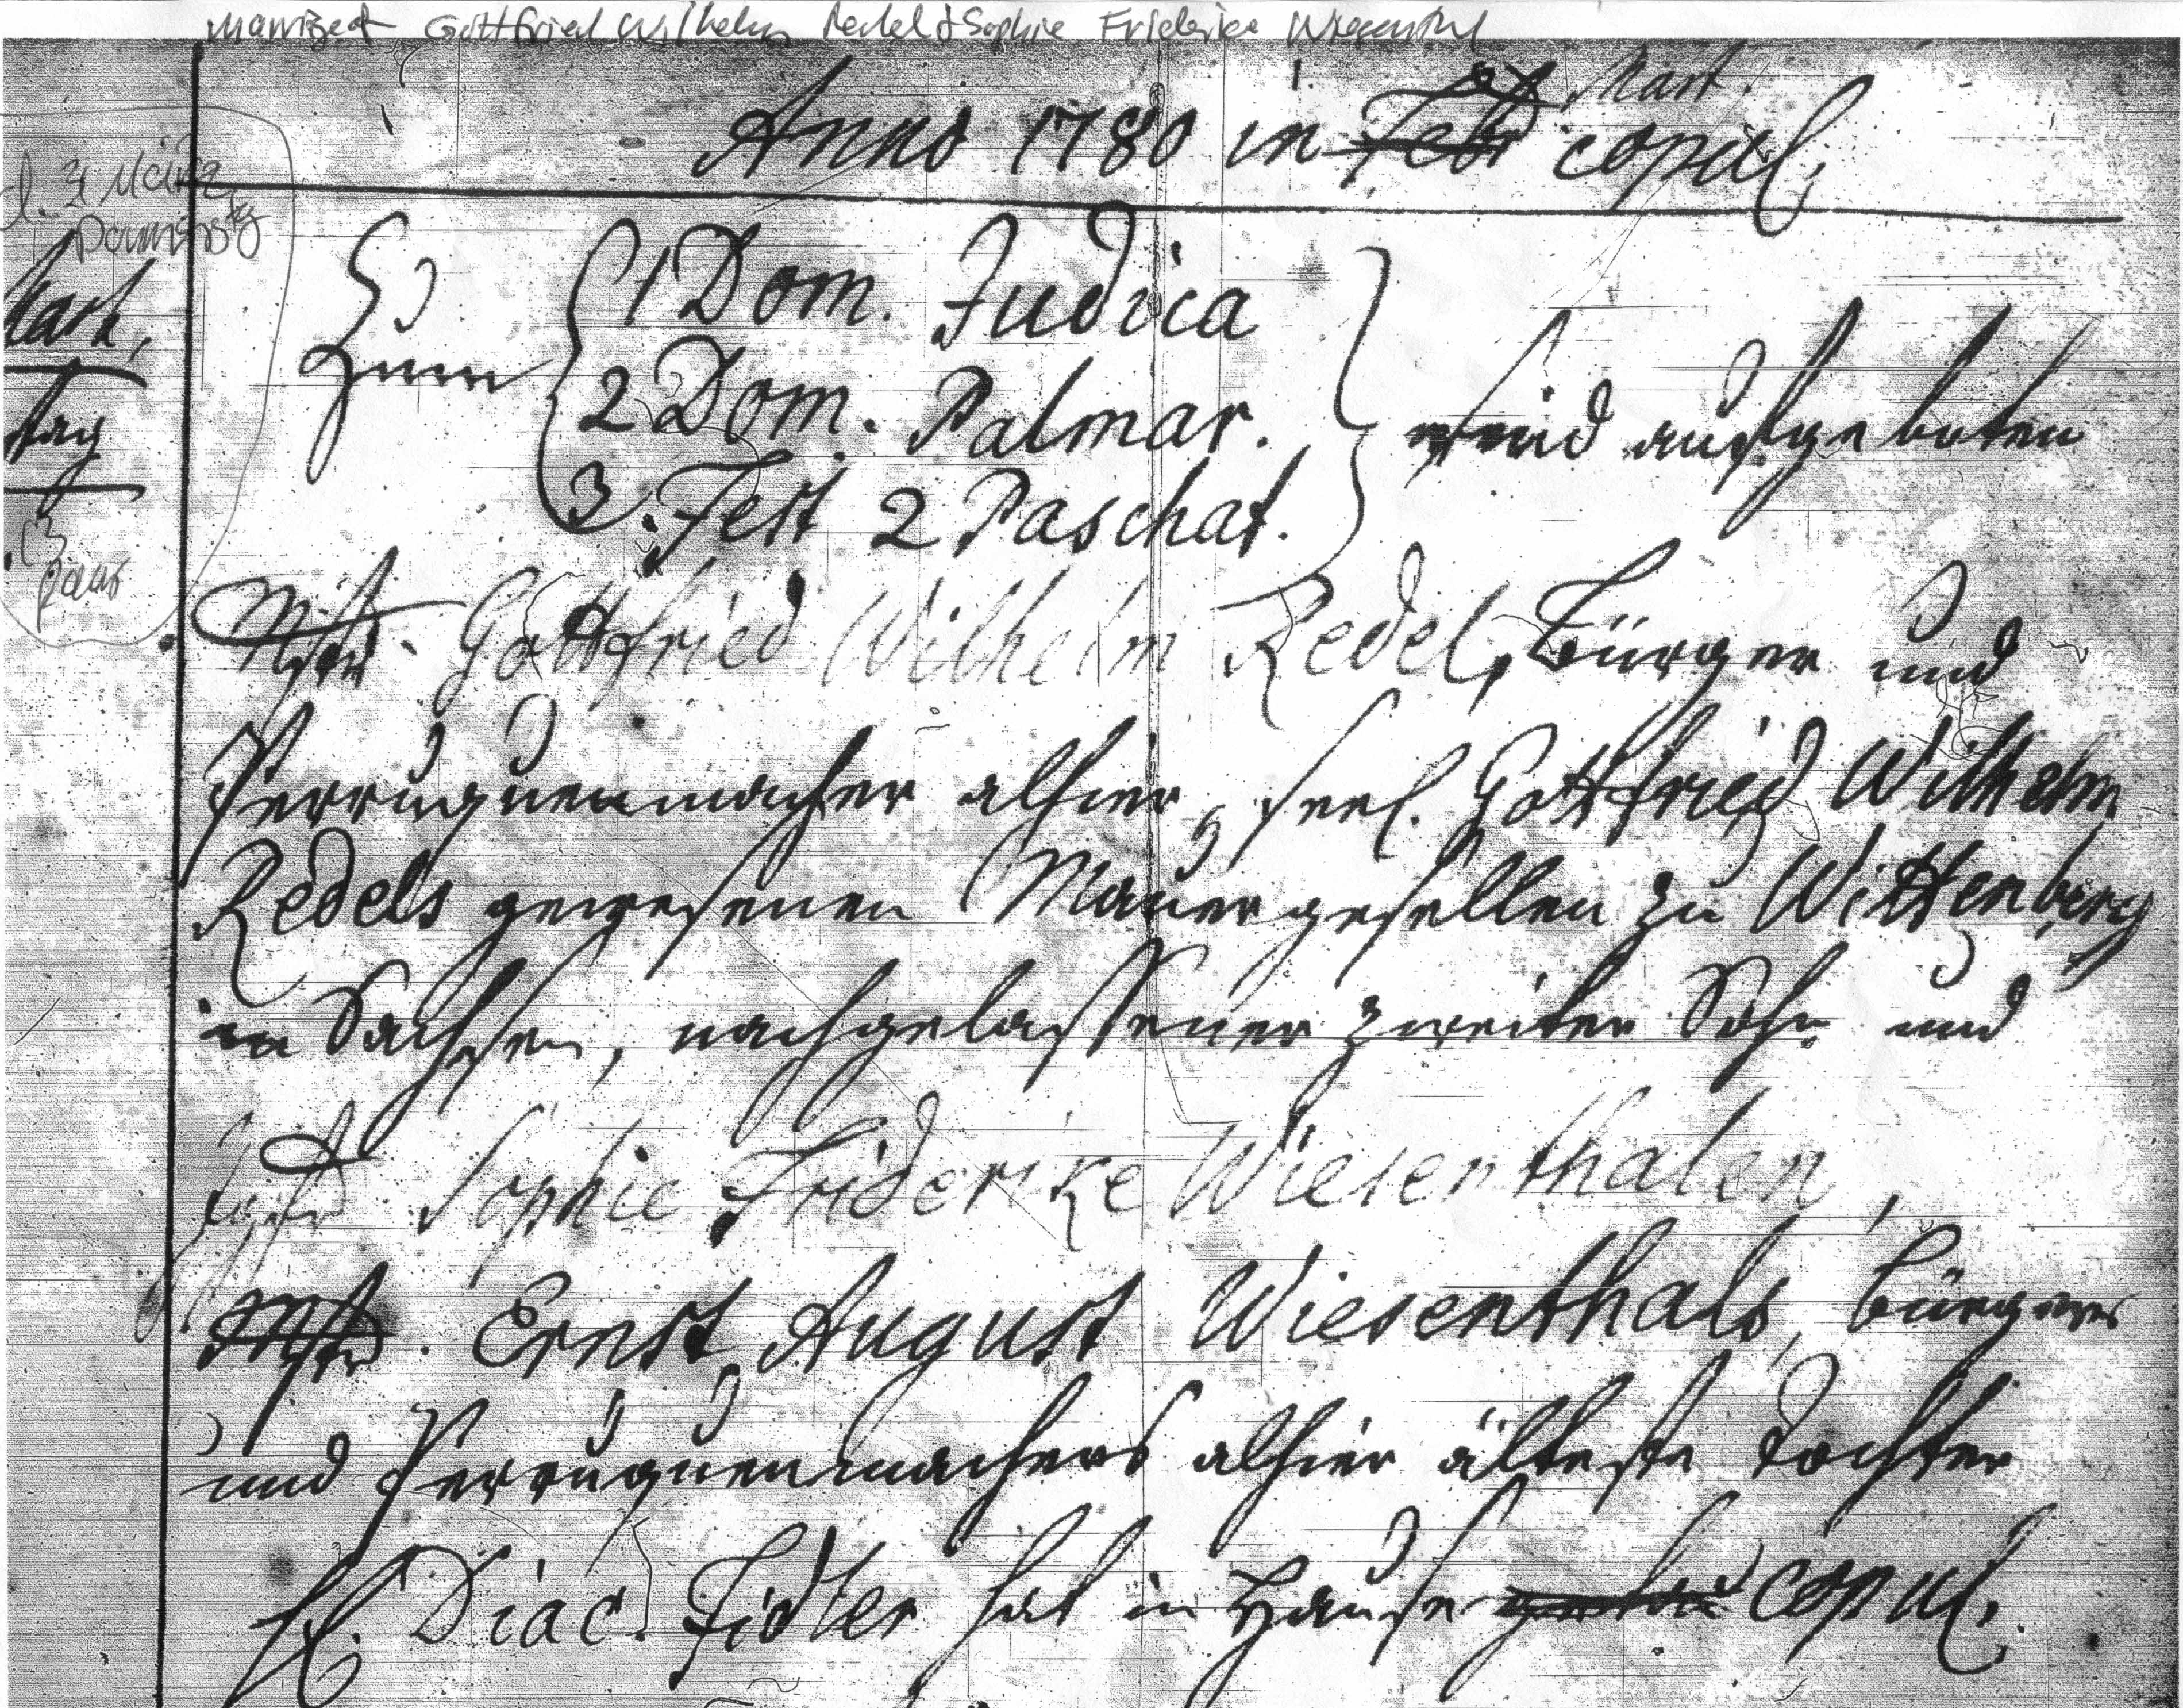 Gottfried Wilhelm Redel & Sophie Friderike
Anno 1780 in Febr Mart copul.
März
Mart.
tag
Paar
Zum
1 Dom. Judica
2 Dom. Palmar.
3. Fest 2 Paschat.
sind aufgeboten
Mstr. Gottfried Wilhelm Redel, Bürger und
Perruquenmacher alhier, seel. Gottfried Wilhelm
Redels gewesenen Mauergesellen zu Wittenberg
in Sachsen, nachgelassener zweiter Sohn und
Jgfr Sophie Friderike Wiesenthalen,
Mstr. Ernst August Wiesenthals, Bürgers
und Perruquenmachers alhier älteste Tochter
H. Diac. Fidler hat in Hause copul.